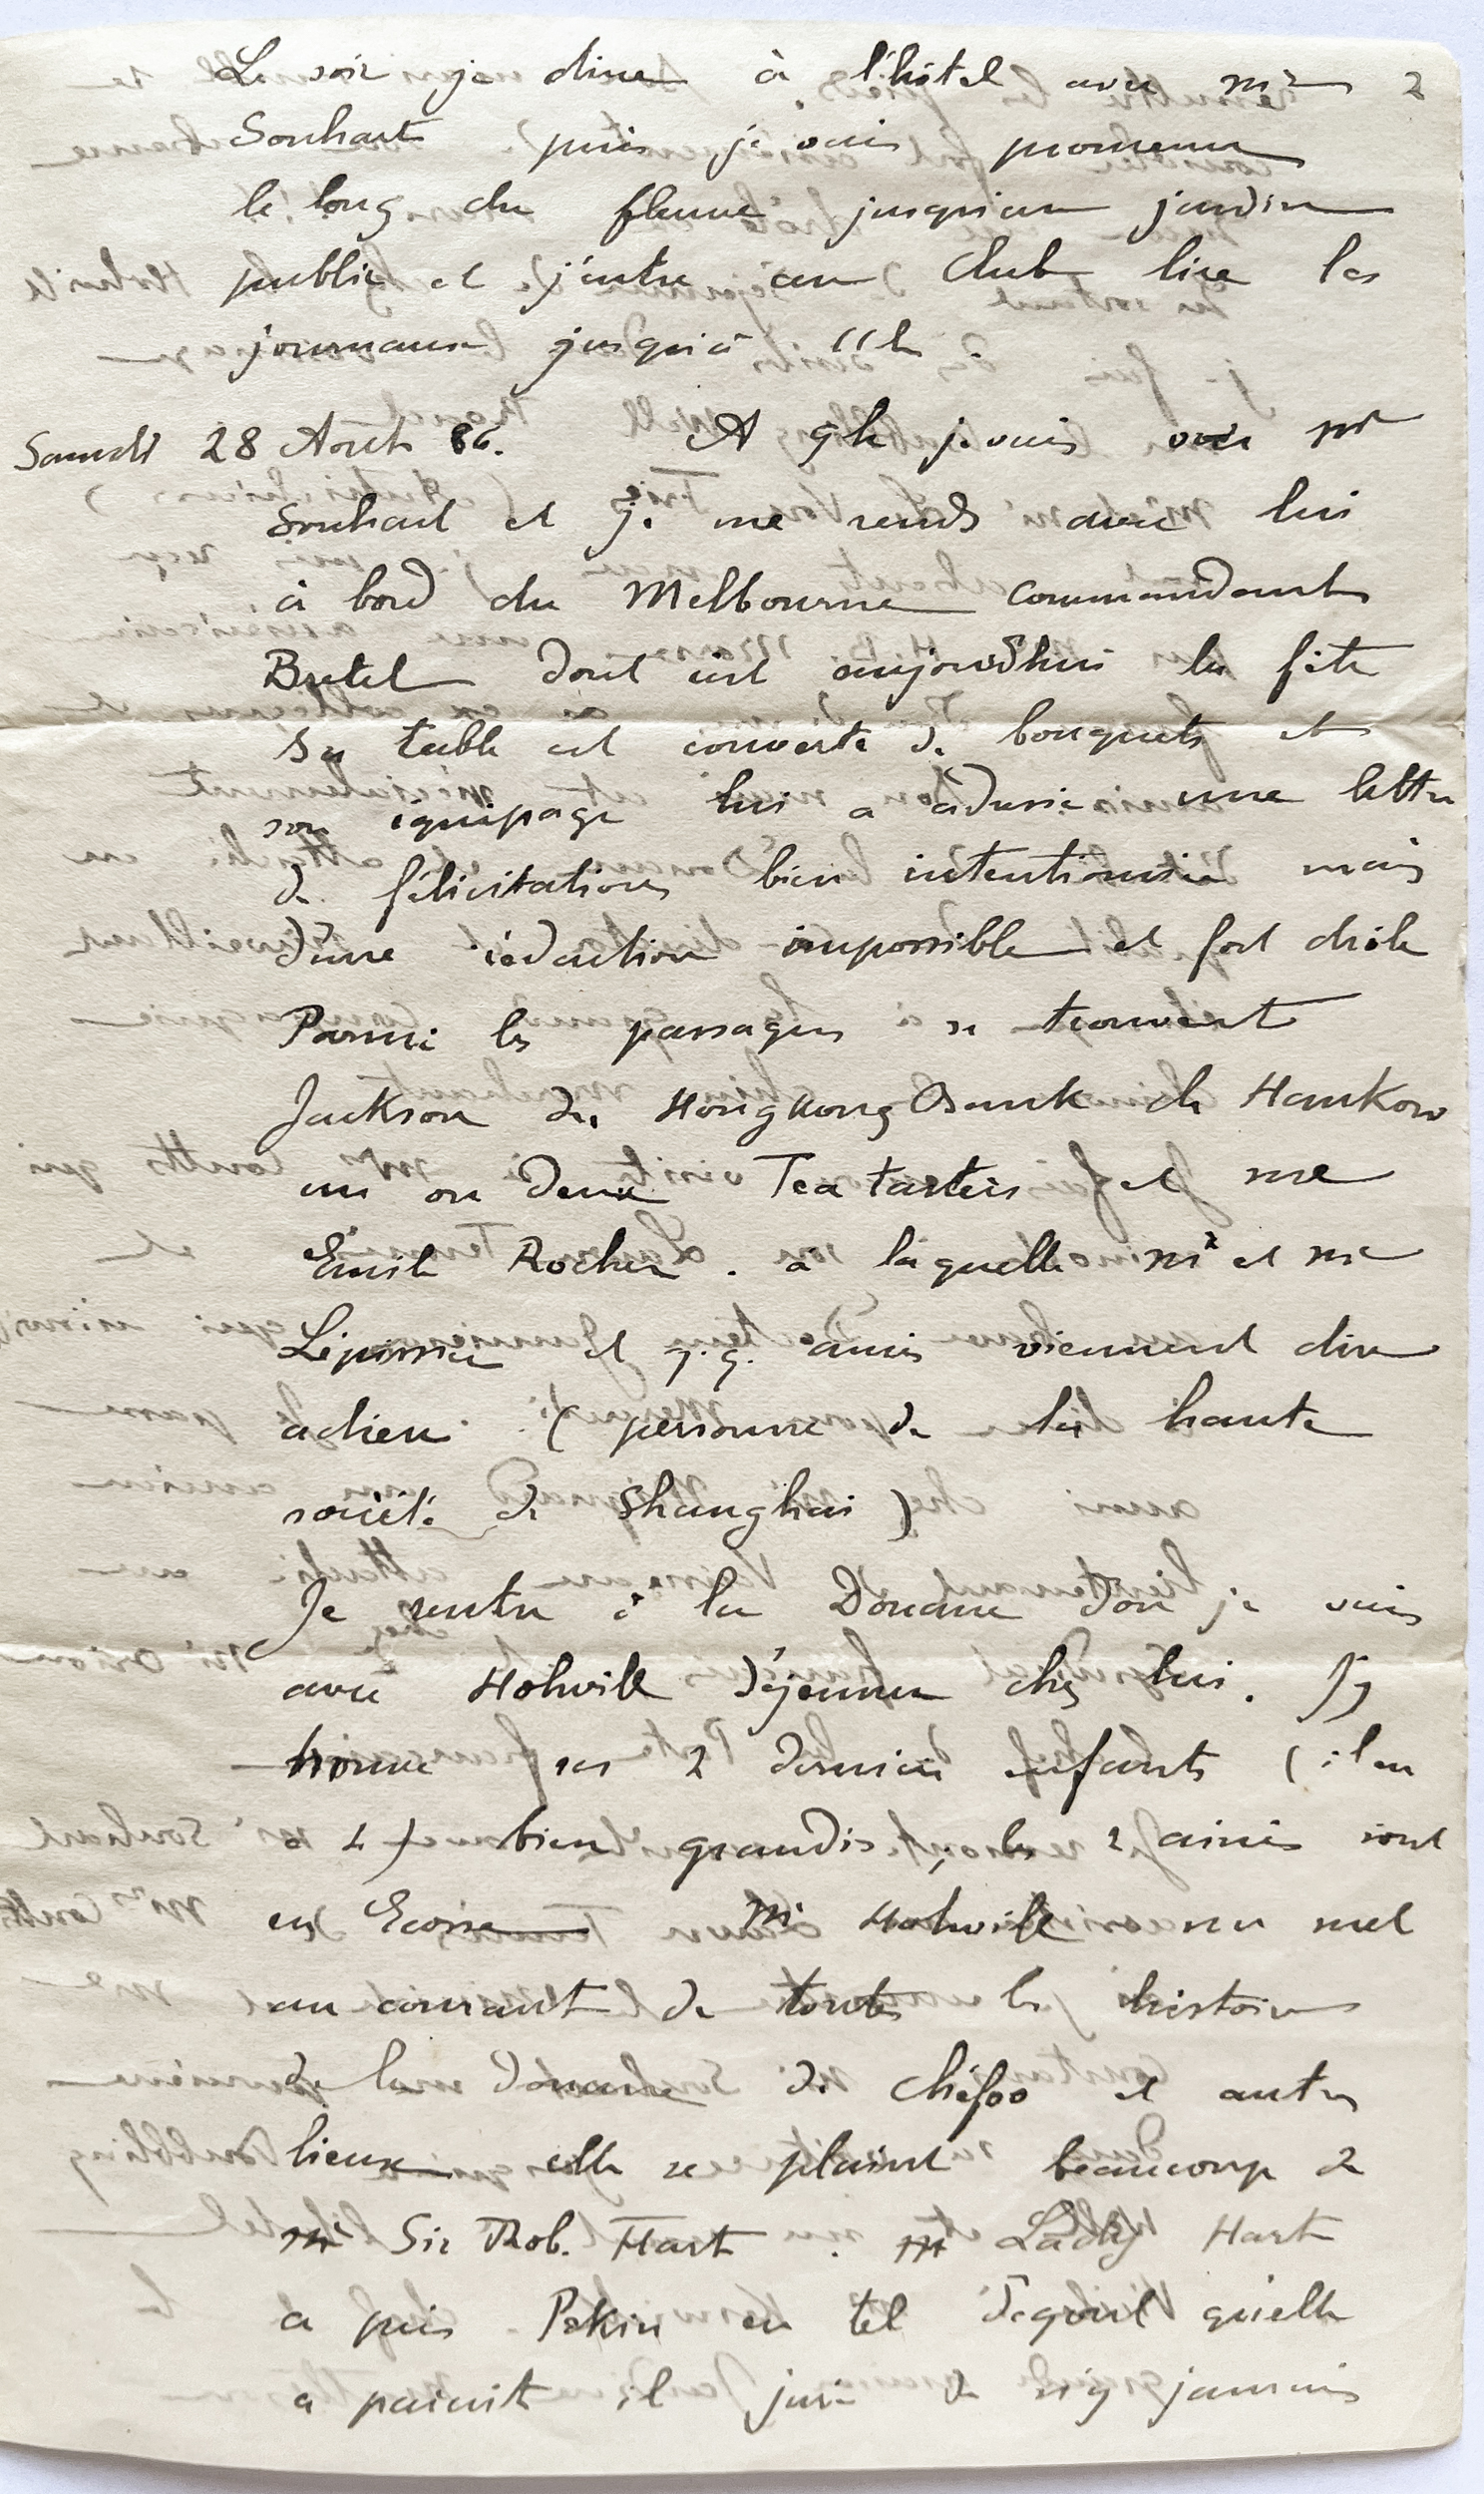 Le soir je dine à l'hôtel avec Mr 2
Souhart puis je vais promener
le long du fleuve jusqu'au jardin
public et j'entre au Club lire les
journaux jusqu'à 11h.
Samedi 28 Août 86. A 9h je vais voir Mr
Souhart et je me rends avec lui
à bord du Melbourne commandant
Bretel dont c'est aujourd'hui la fête
sa table est couverte de bouquets et
son équipage lui a adressé une lettre
de félicitations bien intentionnée mais
d'une rédaction impossible et fort drôle
Parmi les passagers se trouvent
Jackson de HongKong Bank de Hankow
un ou deux Tea tasters et Me
Émile Rocher. à laquelle Mr et Me
Lépissier et q.q. amis viennent dire
adieu. (personne de la haute
société de Shanghai)
Je rentre à la Douane d'où je vais
avec Holwill déjeuner chez lui. J'y
trouve ses 2 derniers enfants (il en
a 4) bien grandis, les 2 ainés sont
en Ecosse Me Holwill me met
au courant de toutes les histoires
de la Douane de Chefoo et autres
lieux elle se plaint beaucoup de
Mr Sir Rob. Hart. Me Lady Hart
a pris Pekin en tel dégout qu'elle
a parait il juré de n'y jamais